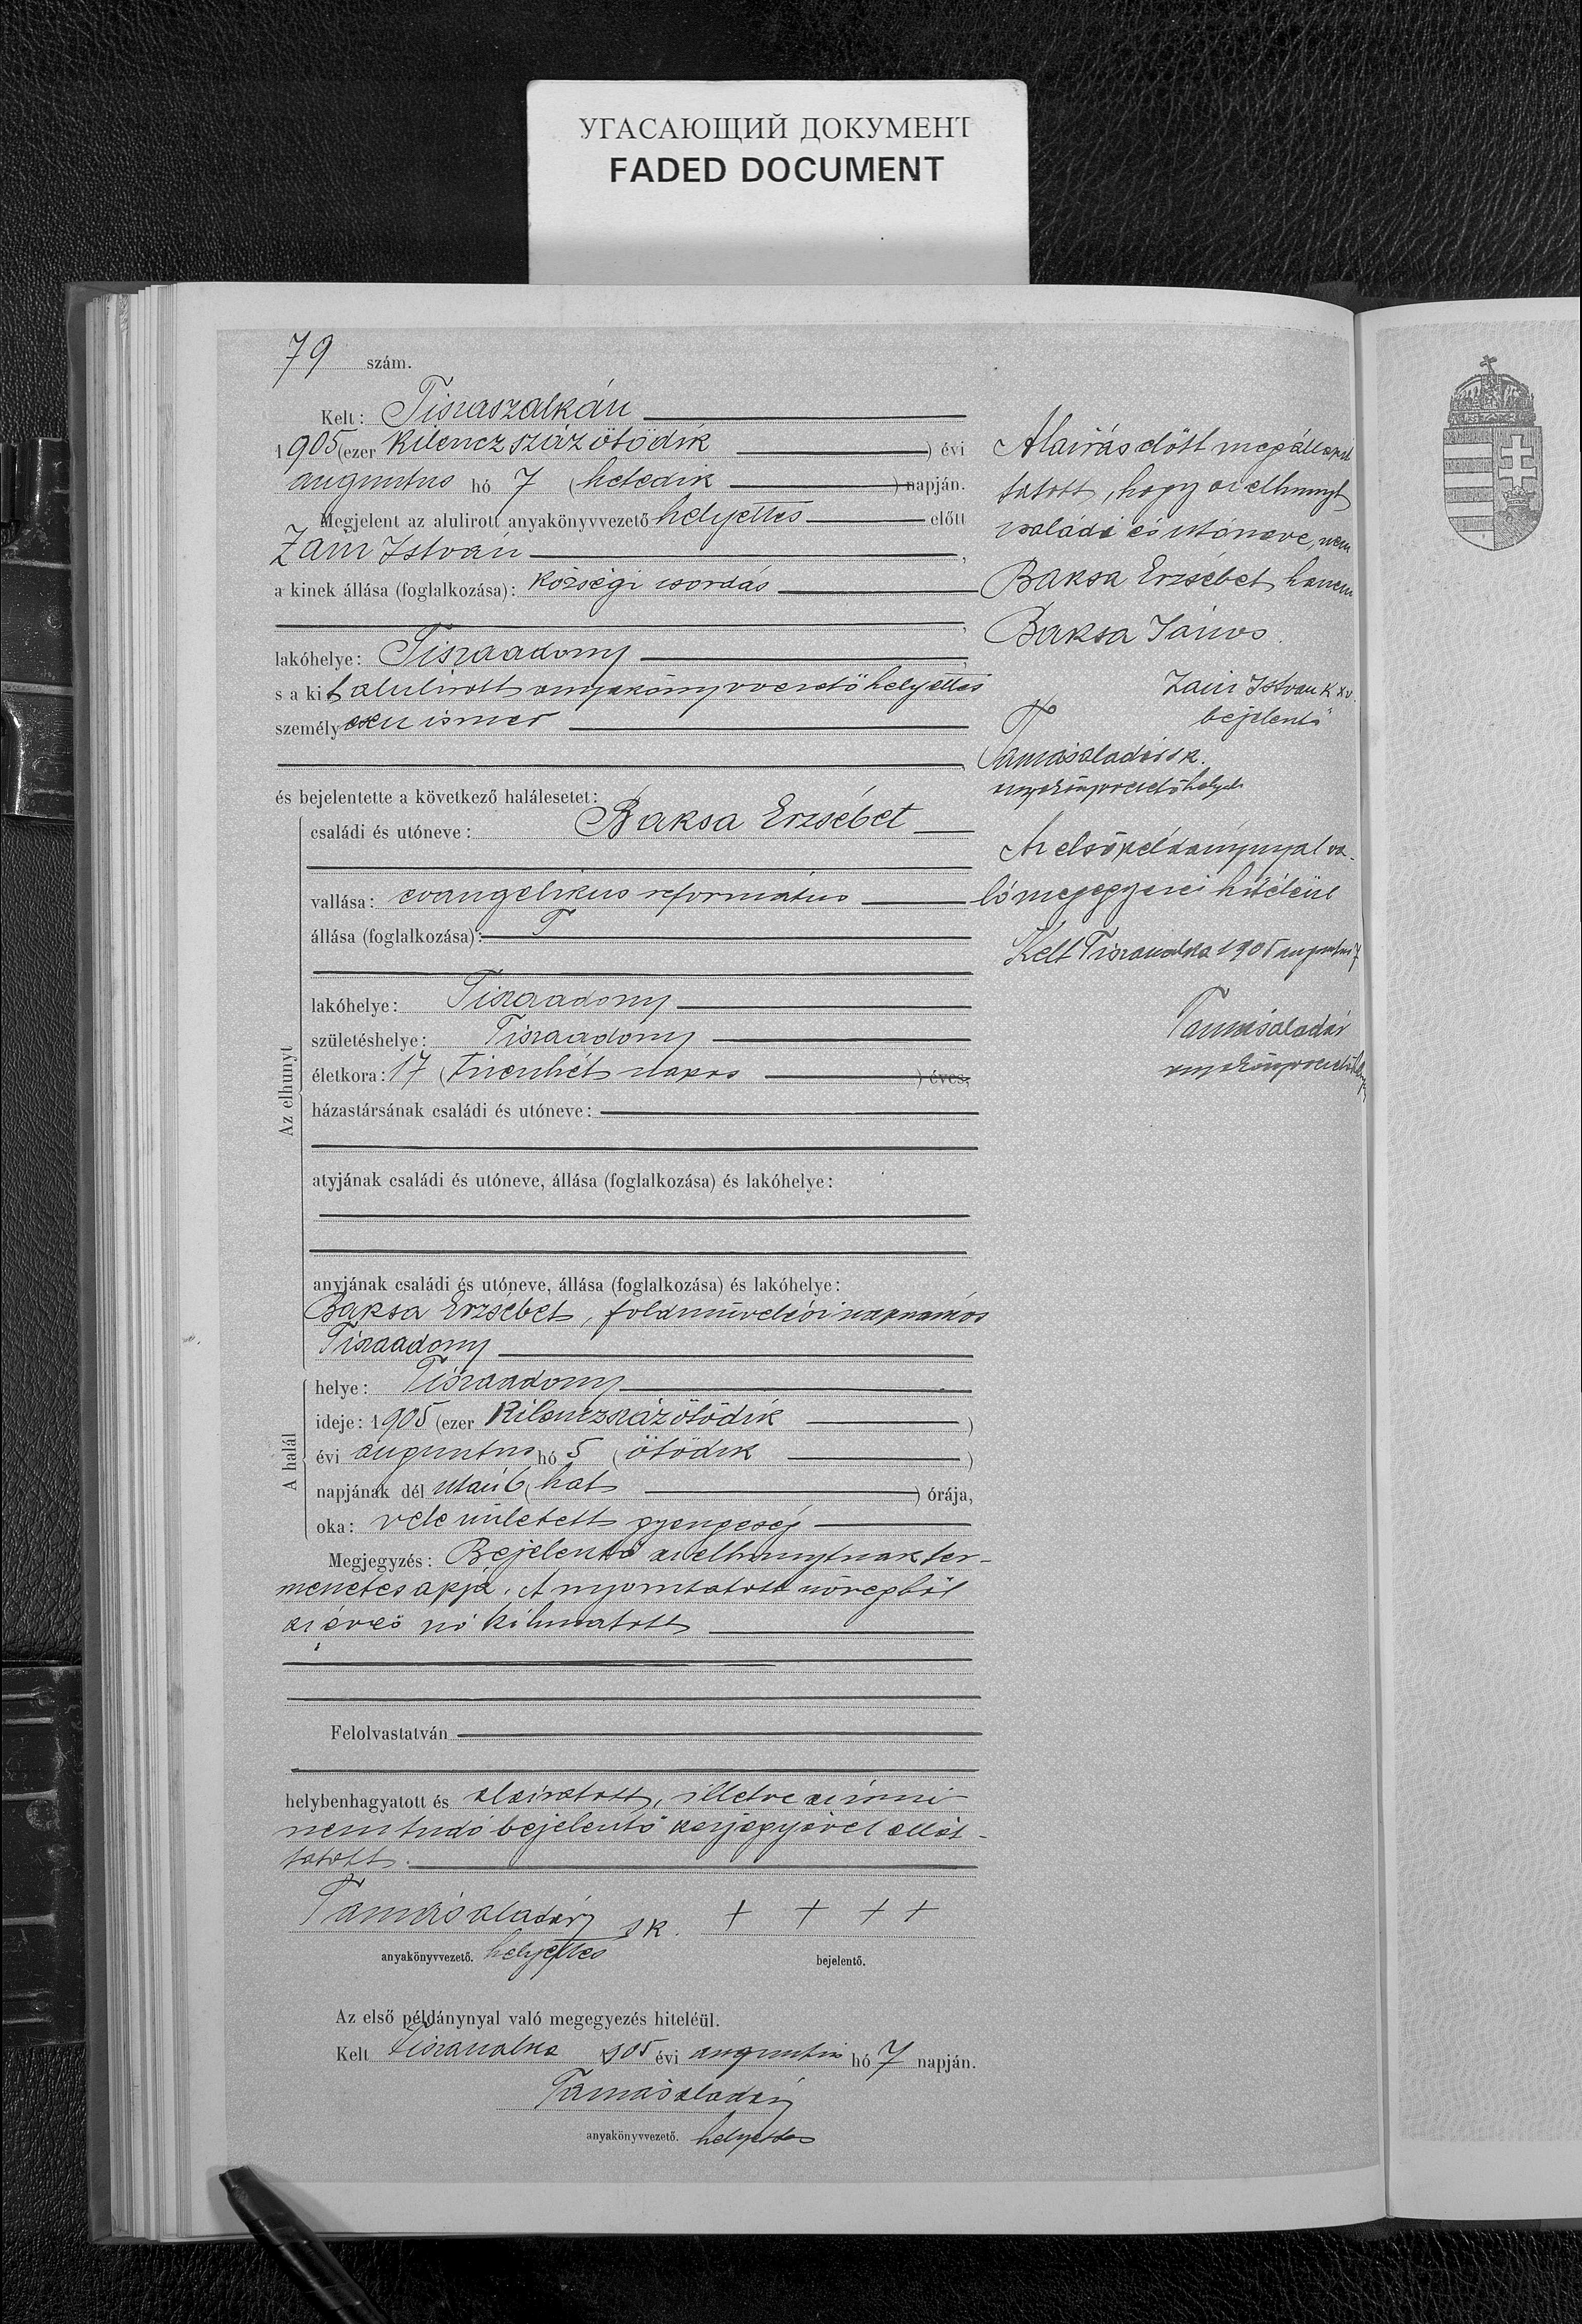 УГАСАЮЩИЙ ДОКУМЕНТ
FADED DOCUMENT
79 szám.
Kelt: Tiszaszalkán
1905 (ezer kilenczszáz ötödik ) évi
augusztus hó 7 (hetedik ) napján.
Megjelent az alulirott anyakönyvvezető helyettes előtt
Zán István ,
a kinek állása (foglalkozása): községi csordás
,
lakóhelye: Tiszaadony ,
s a kit alulirott anyakönyvvezető helyettes
személyesen ismer
,
és bejelentette a következő halálesetet:
Az elhunyt
családi és utóneve: Baksa Erzsébet
vallása: evangelikus református
állása (foglalkozása):
lakóhelye: Tiszaadony
születéshelye: Tiszaadony
életkora: 17 (tizenhét napos ) éves,
házastársának családi és utóneve:
atyjának családi és utóneve, állása (foglalkozása) és lakóhelye:
anyjának családi és utóneve, állása (foglalkozása) és lakóhelye:
Baksa Erzsébet, földmívelési napszámos
Tiszaadony
A halál
helye: Tiszaadony
ideje: 1905 (ezer kilenczszáz ötödik )
évi augusztus hó 5 (ötödik )
napjának dél után 6 (hat ) órája,
oka: vele született gyengeség
Megjegyzés: Bejelentő az elhunytnak ter-
mészetes apja. A nyomtatott szövegből
az éves szó kihuzatott
Felolvastatván
helybenhagyatott és aláiratott, illetve az irni
nem tudó bejelentő kézjegyével ellát-
tatott.
Tamás Aladár sk. + + + +
anyakönyvvezető. helyettes bejelentő.
Az első példánynyal való megegyezés hiteléül.
Kelt Tiszaszalka 1905 évi augusztus hó 7 napján.
Tamás Aladár
anyakönyvvezető. helyettes
Aláirás előtt megállapit
tatott, hogy az elhunyt
családi és utóneve, nem
Baksa Erzsébet hanem
Baksa János.
Zán István
bejelentő
Tamás Aladár sk.
anyakönyvvezető helyett
Az első példánynyal va-
ló megegyezés hiteléül
Kelt Tiszaszalka 1905 augusztus 7
Tamás Aladár
anyakönyvvezető helyettes